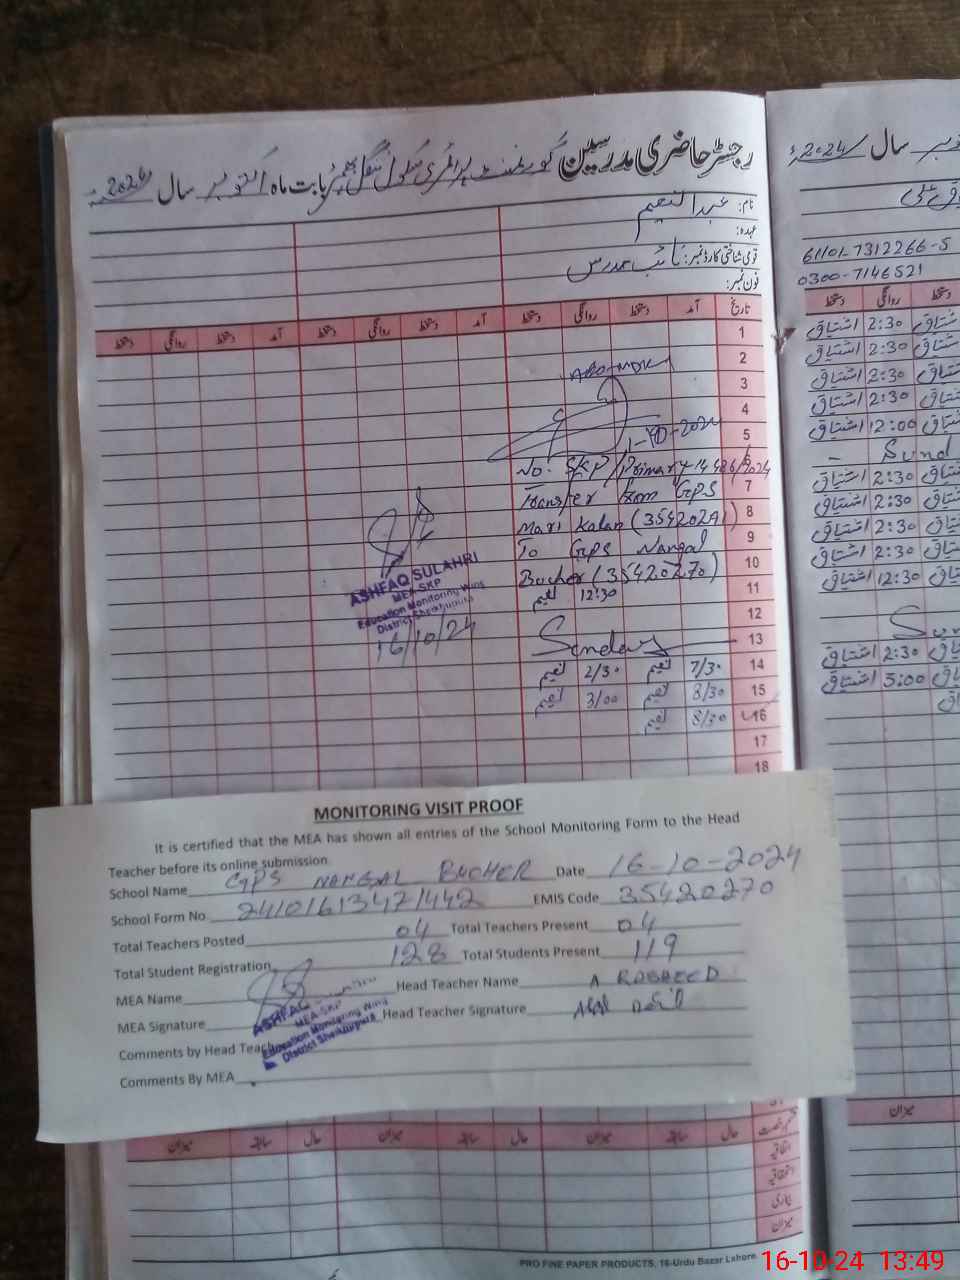 رجسٹر حاضری مدرسین گورنمنٹ پرائمری سکول ننگل بچر بابت ماہ اکتوبر سال 2024ء
نام: عبدالنعیم
عہدہ:
قومی شناختی کارڈ نمبر: نائب مدرس
فون نمبر:
تاریخ آمد دستخط روانگی دستخط آمد دستخط روانگی دستخط آمد دستخط روانگی دستخط
1
2
3
4
5 1-10-2024
6 No. SKP/Primary 14486/2024
7 Transfer from GPS
8 Mari Kalan (35420291)
9 To GPS Nangal
10 Bucher (35420270)
11 نعیم 12:30
12
13 Sunday
14 7/30 نعیم 2/30 نعیم
15 8/30 نعیم 3/00 نعیم
16 8/30 نعیم
17
18
ASHFAQ SULAHRI
MEA-SKP
Education Monitoring Wing
District Sheikhupura
16/10/24
MONITORING VISIT PROOF
It is certified that the MEA has shown all entries of the School Monitoring Form to the Head
Teacher before its online submission
School Name GPS NANGAL BUCHER Date 16-10-2024
School Form No. 24101613471442 EMIS Code 35420270
Total Teachers Posted 04 Total Teachers Present 04
Total Student Registration 128 Total Students Present 119
MEA Name Head Teacher Name A RASHEED
MEA Signature Head Teacher Signature
ASHFAQ
MEA-SKP
Education Monitoring Wing
District Sheikhupura
Comments by Head Teac
Comments By MEA
حال سابقہ میزان حال سابقہ میزان حال سابقہ میزان
اتفاقیہ
استحقاقیہ
بیماری
میزان
PRO FINE PAPER PRODUCTS, 16-Urdu Bazar Lahore.
سال 2024ء
61101-7312266-5
0300-7146521
دستخط روانگی دستخط
اشتیاق 2:30 اشتیاق
اشتیاق 2:30 اشتیاق
اشتیاق 2:30 اشتیاق
اشتیاق 2:30 اشتیاق
اشتیاق 12:00 اشتیاق
Sund
اشتیاق 2:30 اشتیاق
اشتیاق 2:30 اشتیاق
اشتیاق 2:30 اشتیاق
اشتیاق 2:30 اشتیاق
اشتیاق 12:30
Sun
اشتیاق 2:30
اشتیاق 3:00
میزان
16-10-24 13:49